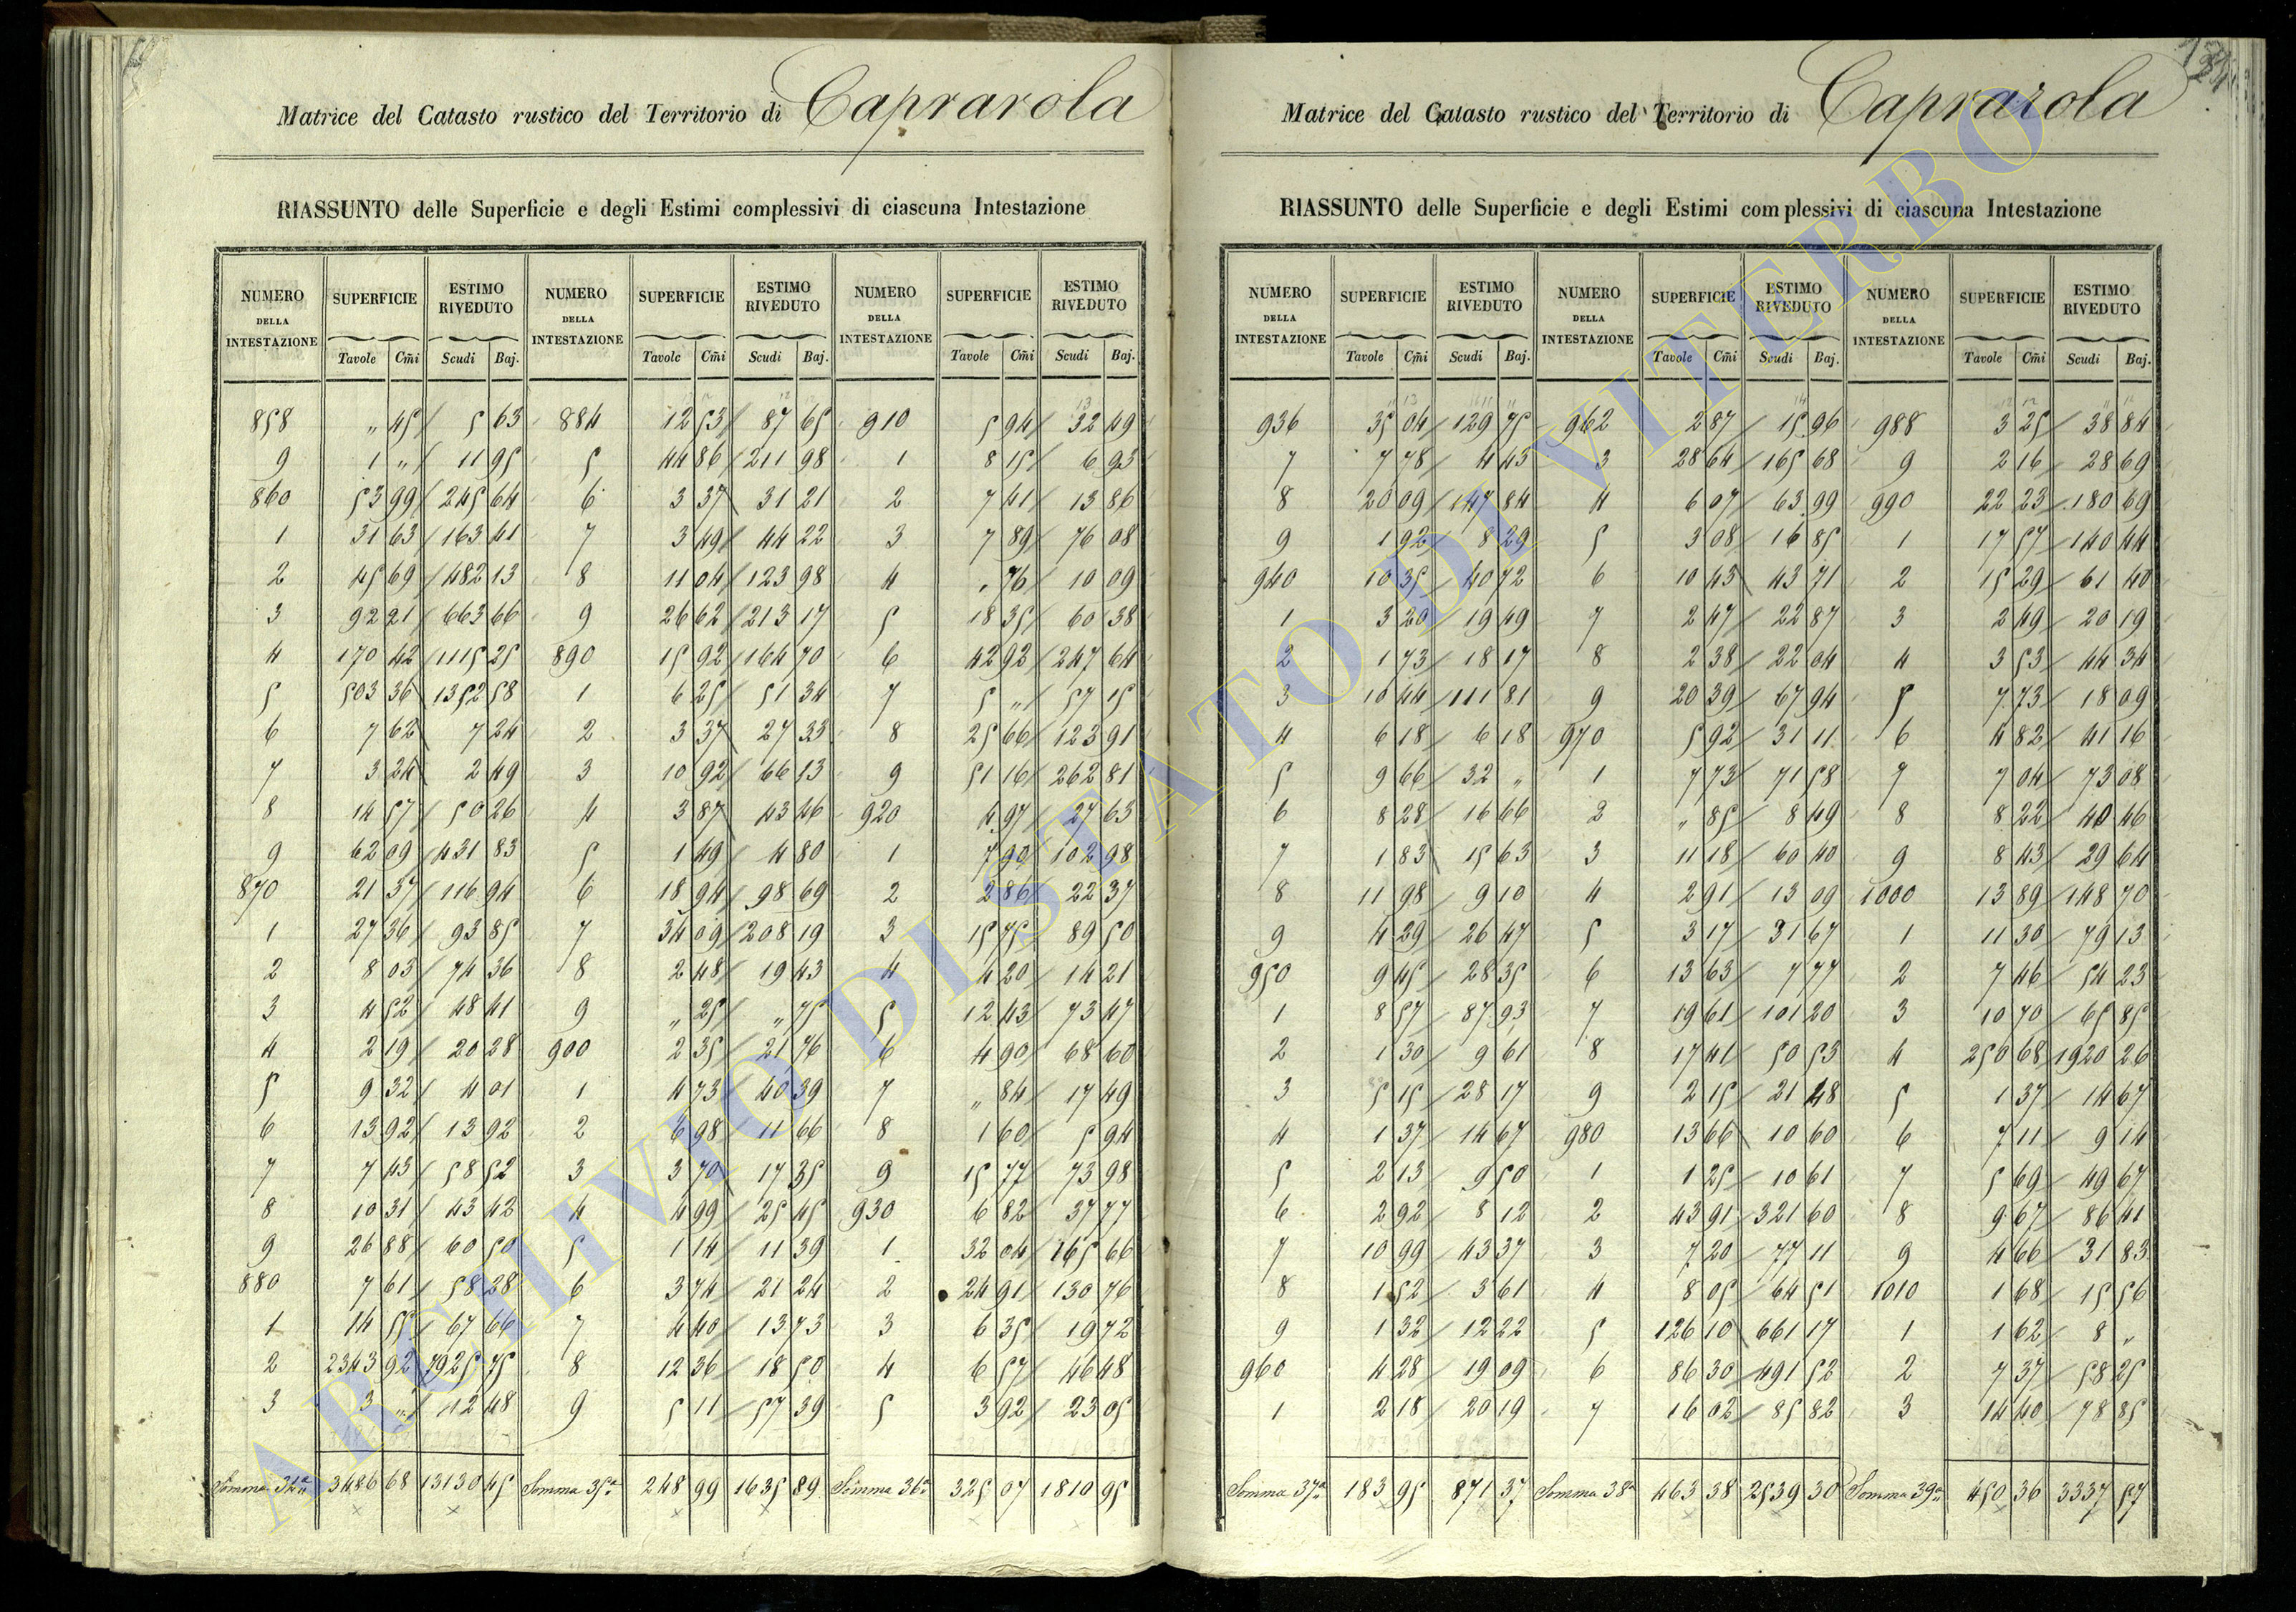 Matrice del Catasto rustico del Territorio di Caprarola
RIASSUNTO delle Superficie e degli Estimi complessivi di ciascuna Intestazione
NUMERO DELLA INTESTAZIONE SUPERFICIE ESTIMO RIVEDUTO NUMERO DELLA INTESTAZIONE SUPERFICIE ESTIMO RIVEDUTO NUMERO DELLA INTESTAZIONE SUPERFICIE ESTIMO RIVEDUTO
Tavole Cm̃i Scudi Baj. Tavole Cm̃i Scudi Baj. Tavole Cm̃i Scudi Baj.
858 „ 45 5 63 884 12 53 87 65 910 5 94 32 49
9 1 „ 11 95 5 44 86 211 98 1 8 15 6 93
860 53 99 245 64 6 3 37 31 21 2 7 41 13 86
1 31 63 163 41 7 3 49 44 22 3 7 89 76 08
2 45 69 482 13 8 11 04 123 98 4 „ 76 10 09
3 92 21 663 66 9 26 62 213 17 5 18 35 60 38
4 170 42 1115 25 890 15 92 164 70 6 42 92 247 64
5 503 36 1352 58 1 6 25 51 34 7 5 „ 57 15
6 7 62 7 24 2 3 37 27 33 8 25 66 123 91
7 3 24 2 49 3 10 92 66 13 9 51 16 262 81
8 14 57 50 26 4 3 87 43 46 920 4 97 27 63
9 62 09 431 83 5 1 49 4 80 1 7 90 102 98
870 21 37 116 94 6 18 94 98 69 2 2 86 22 37
1 27 36 93 85 7 34 09 208 19 3 15 75 89 50
2 8 03 74 36 8 2 48 19 43 4 4 20 14 21
3 4 52 48 41 9 „ 25 „ 75 5 12 43 73 47
4 2 19 20 28 900 2 35 21 76 6 4 90 68 60
5 9 32 4 01 1 4 73 40 39 7 „ 84 17 49
6 13 92 13 92 2 6 98 11 66 8 1 60 5 94
7 7 43 58 52 3 3 70 17 35 9 15 77 73 98
8 10 31 43 42 4 4 99 25 45 930 6 82 37 77
9 26 88 60 50 5 1 14 11 39 1 32 04 165 66
880 7 61 58 28 6 3 74 21 24 2 24 91 130 76
1 14 55 67 66 7 4 40 13 73 3 6 35 19 72
2 2343 92 7925 75 8 12 36 18 50 4 6 57 46 48
3 3 „ 12 48 9 5 11 57 39 5 3 92 23 05
Somma 34ª 3486 68 13130 45 Somma 35ª 248 99 1635 89 Somma 36ª 325 07 1810 95
Matrice del Catasto rustico del Territorio di Caprarola
RIASSUNTO delle Superficie e degli Estimi complessivi di ciascuna Intestazione
NUMERO DELLA INTESTAZIONE SUPERFICIE ESTIMO RIVEDUTO NUMERO DELLA INTESTAZIONE SUPERFICIE ESTIMO RIVEDUTO NUMERO DELLA INTESTAZIONE SUPERFICIE ESTIMO RIVEDUTO
Tavole Cm̃i Scudi Baj. Tavole Cm̃i Scudi Baj. Tavole Cm̃i Scudi Baj.
936 35 04 129 75 962 2 87 15 96 988 3 25 38 84
7 7 78 4 43 3 28 64 165 68 9 2 16 28 69
8 20 09 147 84 4 6 07 63 99 990 22 23 180 69
9 1 92 8 29 5 3 08 16 85 1 17 57 140 44
940 10 35 40 72 6 10 43 43 71 2 15 29 61 40
1 3 20 19 49 7 2 47 22 87 3 2 49 20 19
2 1 73 18 17 8 2 38 22 04 4 3 53 44 34
3 10 44 111 81 9 20 39 67 94 5 7 73 18 09
4 6 18 6 18 970 5 92 31 11 6 4 82 41 16
5 9 66 32 „ 1 7 73 71 58 7 7 04 73 08
6 8 28 16 66 2 „ 85 8 49 8 8 22 40 46
7 1 83 15 63 3 11 18 60 40 9 8 43 29 64
8 11 98 9 10 4 2 91 13 09 1000 13 89 148 70
9 4 29 26 47 5 3 17 31 67 1 11 30 79 13
950 9 45 28 35 6 13 63 7 77 2 7 46 54 23
1 8 57 87 93 7 19 61 101 20 3 10 70 65 85
2 1 30 9 61 8 17 41 50 53 4 250 68 1920 26
3 5 15 28 17 9 2 15 21 48 5 1 37 14 67
4 1 37 14 67 980 13 66 10 60 6 7 11 9 14
5 2 13 9 50 1 1 25 10 61 7 5 69 49 67
6 2 92 8 12 2 43 91 321 60 8 9 67 86 41
7 10 99 43 37 3 7 20 77 11 9 4 66 31 83
8 1 52 3 61 4 8 05 64 51 1010 1 68 15 56
9 1 32 12 22 5 126 10 661 17 1 1 62 8 „
960 4 28 19 09 6 86 30 491 52 2 7 37 58 25
1 2 18 20 19 7 16 02 85 82 3 14 40 78 85
Somma 37ª 183 95 871 37 Somma 38ª 463 38 2539 30 Somma 39ª 450 36 3337 57
ARCHIVIO DI STATO DI VITERBO